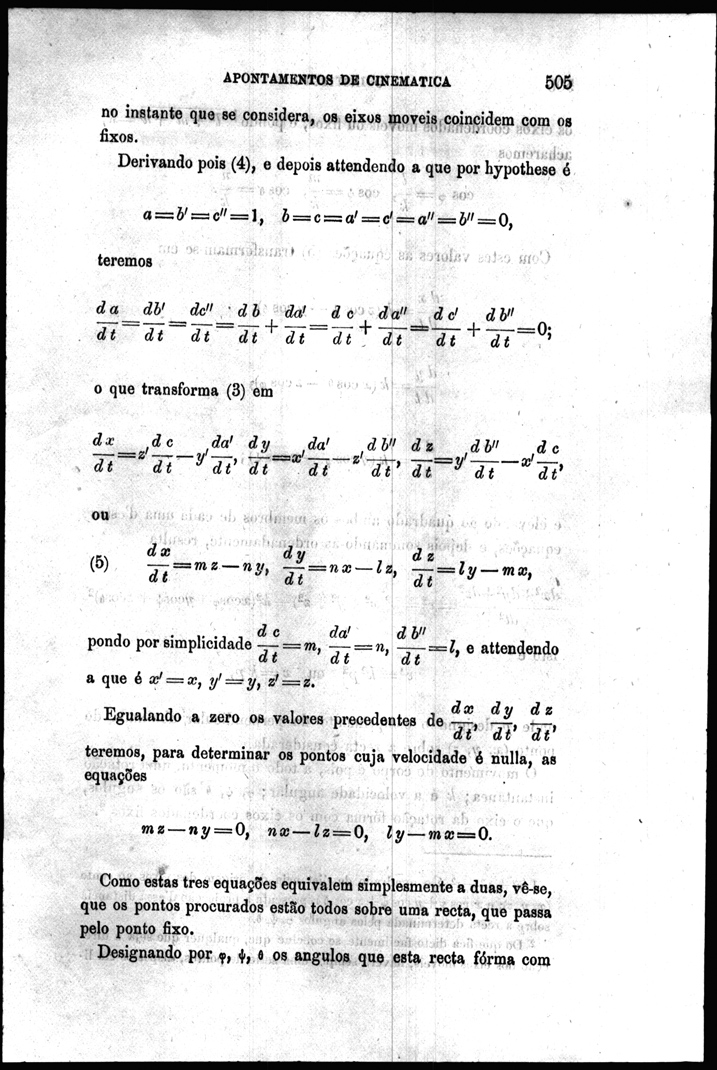 APONTAMENTOS DE CINEMATICA 505
no instante que se considera, os eixos moveis coincidem com os
fixos.
Derivando pois (4), e depois attendendo a que por hypothese é
a=b'=c''=1, b=c=a'=c'=a''=b''=0,
teremos
da/dt = db'/dt = dc''/dt = db/dt + da'/dt = dc/dt + da''/dt = dc'/dt + db''/dt = 0;
o que transforma (3) em
dx/dt = z' dc/dt — y' da'/dt, dy/dt = x' da'/dt — z' db''/dt, dz/dt = y' db''/dt — x' dc/dt,
ou
(5) dx/dt = mz — ny, dy/dt = nx — lz, dz/dt = ly — mx,
pondo por simplicidade dc/dt = m, da'/dt = n, db''/dt = l, e attendendo
a que é x'=x, y'=y, z'=z.
Egualando a zero os valores precedentes de dx/dt, dy/dt, dz/dt,
teremos, para determinar os pontos cuja velocidade é nulla, as
equações
mz — ny = 0, nx — lz = 0, ly — mx = 0.
Como estas tres equações equivalem simplesmente a duas, vê-se,
que os pontos procurados estão todos sobre uma recta, que passa
pelo ponto fixo.
Designando por φ, ψ, θ os angulos que esta recta fórma com